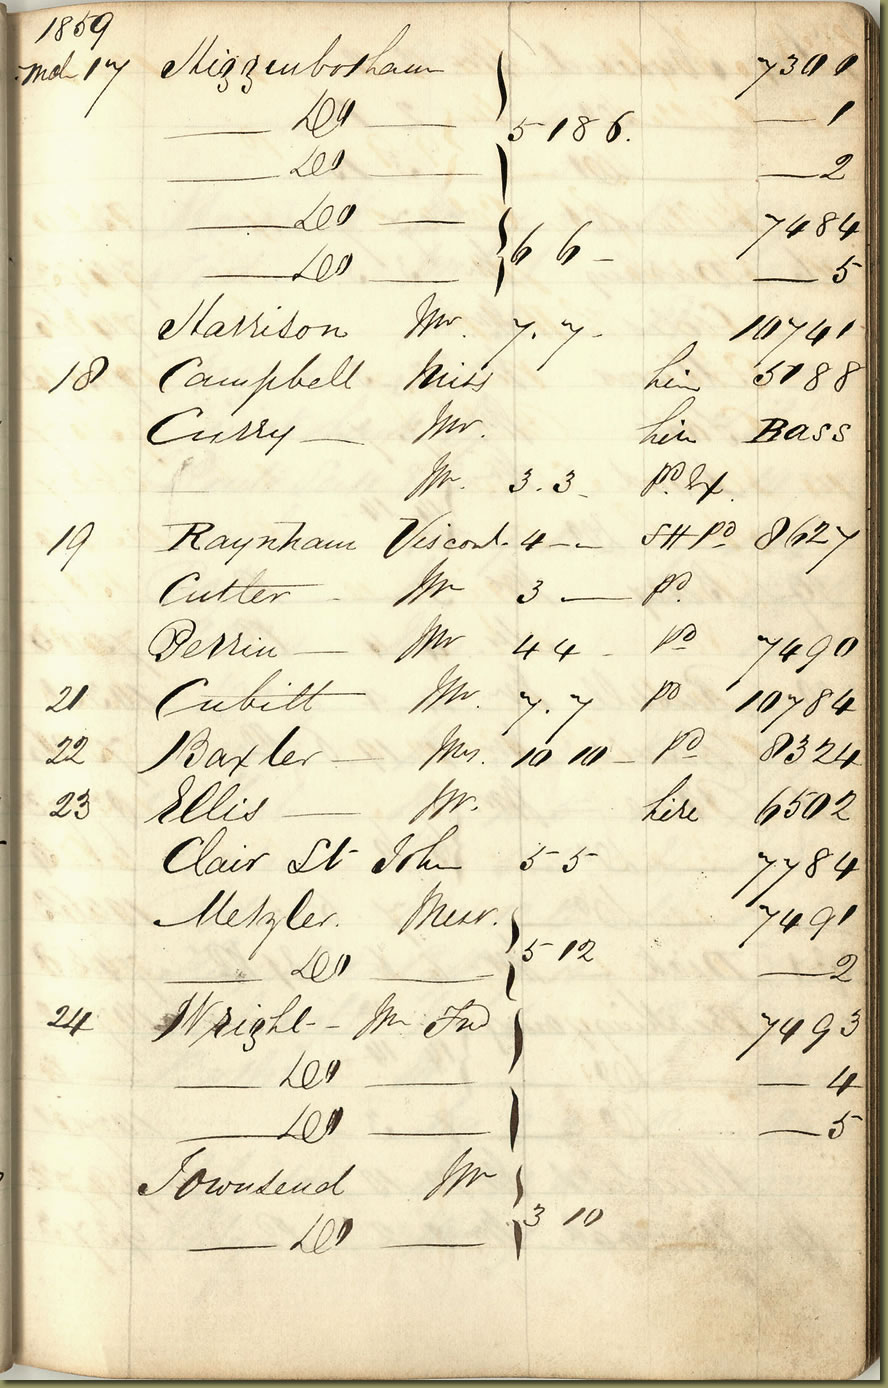 1859
Mch 17 Higginbotham 7300
— Do — 5 18 6. — 1
— Do — — 2
— Do — 7484
— Do — 6 6 - — 5
Harrison Mr. 7. 7 - 10741
18 Campbell Miss hire 5188
Curry — Mr. hire Bass
Mr. 3. 3 - Pd. Ex.
19 Raynham Viscont. 4 - - SH Pd 8627
Cutler - Mr 3 — Pd.
Perrin — Mr 4 4 - Pd 7490
21 Cubitt Mr. 7. 7 Pd 10784
22 Baxter — Mrs. 10 10 - Pd 8324
23 Ellis — Mr. hire 6502
Clair St John 5 5 7784
Metzler. Messr. 7491
— Do — 5 12 — 2
24 Wright - - Mr Fnd 7493
— Do — — 4
— Do — — 5
Townsend Mr
— Do — 3 10